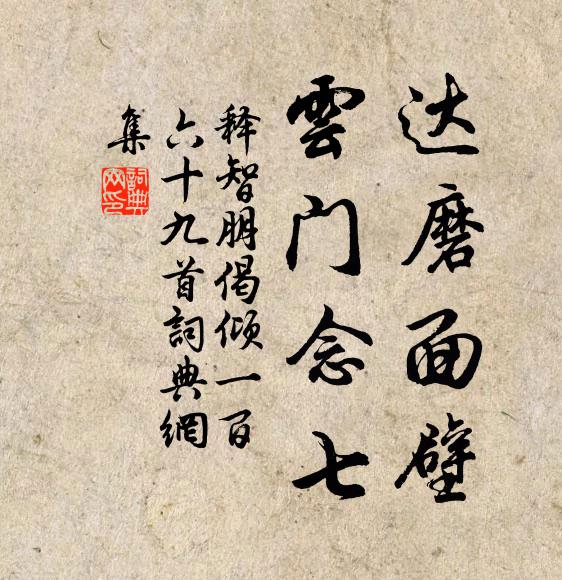 达磨面壁
雲门念七
释智朋偈倾一百
六十九首詞典網
集
詞典网印